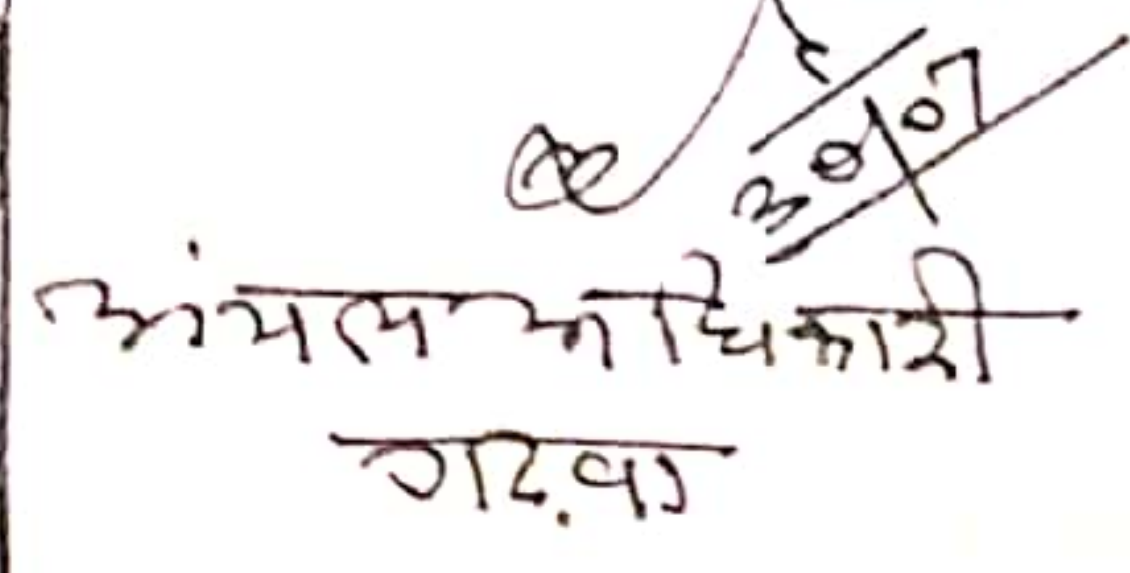 30/07
अंचल अधिकारी
गढ़वा